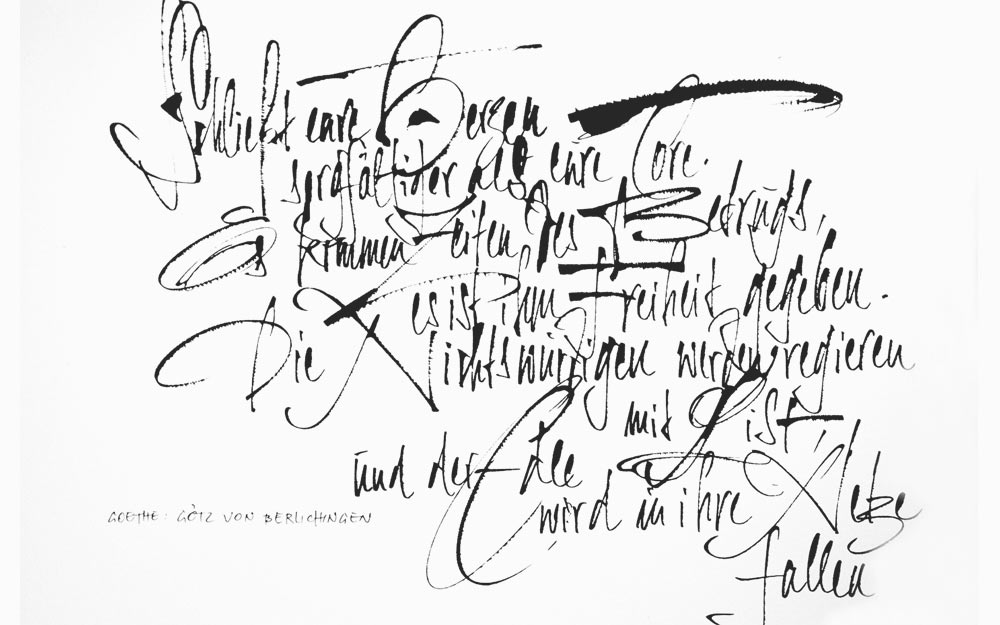 Schließt eure Herzen
sorgfältiger als eure Tore.
Es kommen Zeiten des Betrugs,
es ist ihm Freiheit gegeben.
Die Nichtswürdigen werden regieren
mit List,
und der Edle
wird in ihre Netze
fallen
GOETHE: GÖTZ VON BERLICHINGEN